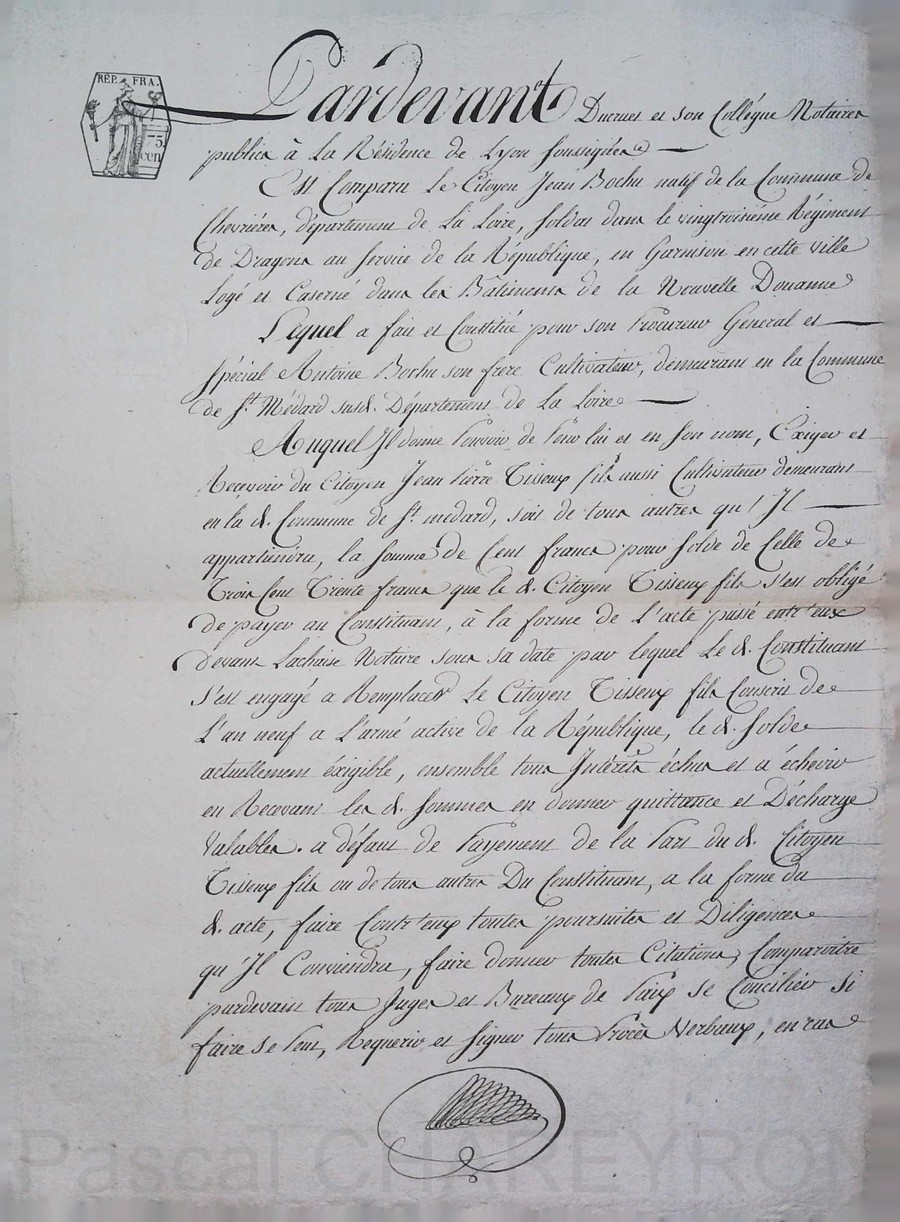 REP. FRA.
75 cen
Pardevant Ducruet et son Collégue Notaires
publics à La Résidence de Lyon soussignés
Est Comparu Le Citoyen Jean Bochu natif de la Commune de
Chevrières, département de La Loire, soldat dans le vingtroisième Régiment
de Dragons au service de la République, en Garnison en cette ville
Logé et Caserné dans les Bâtiments de la Nouvelle Douanne
Lequel a fait et Constitué pour son Procureur General et
spécial Antoine Bochu son frere Cultivateur, demeurant en la Commune
de St. Médard susd. Département de La Loire
Auquel Il donne Pouvoir de Pour lui et en son nom, Exiger et
Recevoir du Citoyen Jean Pierre Tisseux fils aussi Cultivateur demeurant
en la d. Commune de St. medard, soit de tous autres qu'Il
appartiendra, la somme de Cent francs pour solde de Celle de
Trois Cent Trente francs que le d. Citoyen Tisseux fils s'est obligé
de payer au Constituant, à la forme de L'acte passé entr'eux
devant Lachaise Notaire sous sa date par lequel Le d. Constituant
s'est engagé a Remplacer Le Citoyen Tisseux fils Conscrit de
L'an neuf a L'armé active de la République, le d. solde
actuellement éxigible, ensemble tous Intérêts échus et a échevir
en Recevant les d. sommes en donner quittance et Décharge
Valables. a défaut de Payement de la Part du d. Citoyen
Tisseux fils ou de tous autres Du Constituant, a la forme du
d. acte, faire Contr'eux toutes poursuites et Diligences
qu'Il Conviendra, faire donner toutes Citations, Comparoitre
pardevant tous Juges et Bureaux de Paix se Concilier si
faire se Peut, Requerir et signer tous Procès Verbaux, en cas
Pascal CHAREYRON